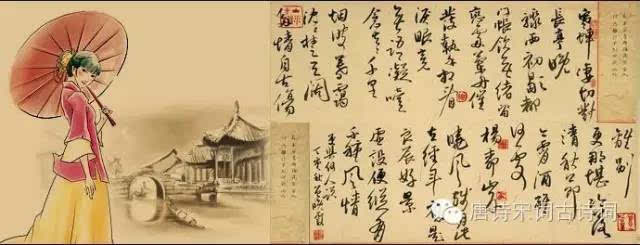 寒蟬凄切對
長亭晚
驟雨初歇都
門帳飲無緒留
戀處蘭舟催
發執手相看
淚眼竟
無語凝噎
念去去千里
煙波暮靄
沈沈楚天闊
多情自古傷
離別
更那堪冷落
清秋節
今宵酒醒
何處
楊柳岸
曉風殘月此
去經年應是
良辰好景
虛設便縱有
千種風情
更與何人說
唐诗宋词古诗词